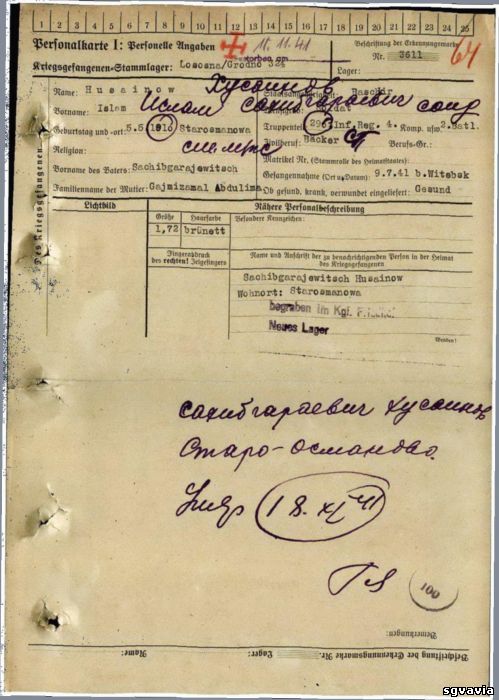 1 2 3 4 5 6 7 8 9 10 11 12 13 14 15 16 17 18 19 20 21 22 23 24 25
Personalkarte I: Personelle Angaben
11.11.41
Beschriftung der Erkennungsmarke
Nr. 3611
64
Kriegsgefangenen-Stammlager: Lososna/Grodno 324
Lager:
Des Kriegsgefangenen
Name: Husainow
Хусаинов
Baschkir
Vorname: Islam
Ислам сахибгараевич солд
Geburtstag und -ort: 5.5.1916 Starosmanowa
Truppenteil: 296.Inf.Reg. 4. Komp. usw. 2.Batl.
Religion:
Zivilberuf: Bäcker
Berufs-Gr.:
Matrikel Nr. (Stammrolle des Heimatstaates):
Vorname des Vaters: Sachibgarajewitsch
Gefangennahme (Ort u. Datum): 9.7.41 b.Witebsk
Familienname der Mutter: Gajmizamal Abdulima
Ob gesund, krank, verwundet eingeliefert: Gesund
Lichtbild
Nähere Personalbeschreibung
Größe
Haarfarbe
Besondere Kennzeichen:
1,72
brünett
Fingerabdruck
des rechten! Zeigefingers
Name und Anschrift der zu benachrichtigenden Person in der Heimat
des Kriegsgefangenen
Sachibgarajewitsch Husainow
Wohnort: Starosmanowa
begraben im Kgf.
Neues Lager
Wenden!
сахибгараевич Хусаинов
Старо-Османово.
Умер 18.XI-41
100
Bemerkungen:
Beschriftung der Erkennungsmarke Nr.
Lager:
Name:
sgvavia